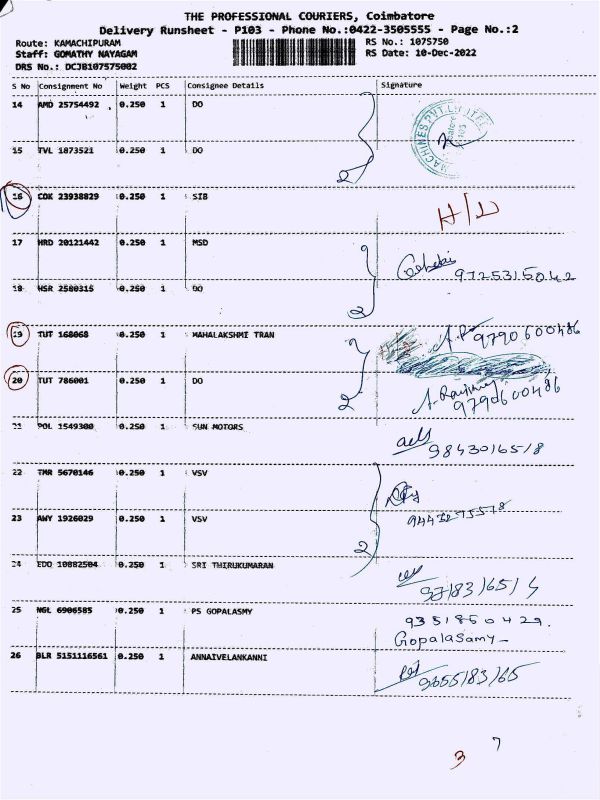 THE PROFESSIONAL COURIERS, Coimbatore
Delivery Runsheet - P103 - Phone No.:0422-3505555 - Page No.:2
Route: KAMACHIPURAM
RS No.: 1075750
Staff: GOMATHY NAYAGAM
RS Date: 10-Dec-2022
DRS No.: DCJB107575002
S No Consignment No Weight PCS Consignee Details Signature
14 AMD 25754492 0.250 1 DO
15 TVL 1873521 0.250 1 DO
2
MACHINES PVT.LIMITED
16 COK 23938829 0.250 1 SIB
H/D
17 HRD 20121442 0.250 1 MSD
9725315042
18 HSR 2580315 0.250 1 DO
2
19 TUT 168068 0.250 1 MAHALAKSHMI TRAN
9790600486
20 TUT 786001 0.250 1 DO
2
9790600486
21 POL 1549300 0.250 1 SUN MOTORS
9843016518
22 TMR 5670146 0.250 1 VSV
23 AWY 1926029 0.250 1 VSV
2
24 EDO 10882504 0.250 1 SRI THIRUKUMARAN
25 NGL 6906585 0.250 1 PS GOPALASMY
9351850429.
Gopalasamy
26 BLR 5151116561 0.250 1 ANNAIVELANKANNI
3 7